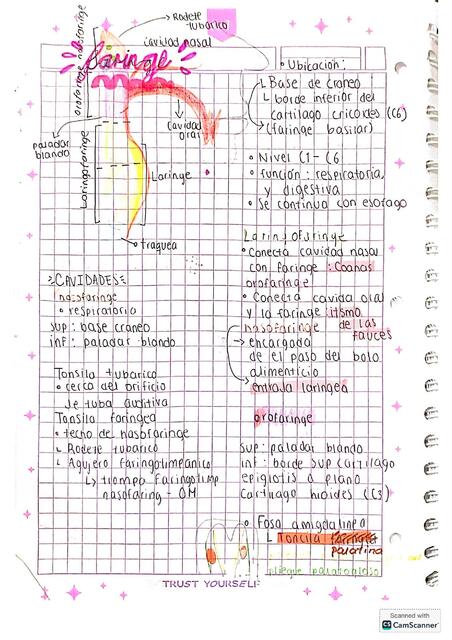 Rodete
tubarico
cavidad nasal
faringe
orofaringe nasofaringe
paladar
blando
cavidad
oral
Laringofaringe
Laringe
traquea
• Ubicacion:
Base de craneo
borde inferior del
cartilago cricoides (C6)
(faringe basilar)
• Nivel C1-C6
• función: respiratoria
y digestiva
• Se continua con esofago
>CAVIDADES<
nasofaringe
• respiratoria
sup: base craneo
inf: paladar blando
Tonsila tubarica
• cerca del orificio
de tuba auditiva
Tonsila faringea
• techo de nasofaringe
Rodete tubarico
Agujero faringotimpanico
trompa faringotimp
nasofaring - OM
Laringofaringe
• Conecta cavidad nasal
con faringe: Coanas
orofaringe
• Conecta cavida oral
y la faringe: itsmo
de las
fauces
nasofaringe
encargada
de el paso del bolo
alimenticio
entrada laringea
orofaringe
sup: paladar blando
inf: borde sup cartilago
epiglotis a plano
Cartilago hioides (C3)
• Fosa amigdalina
Toncila
palatina
pliegue palatogloso
TRUST YOURSELF
Scanned with
CS CamScanner